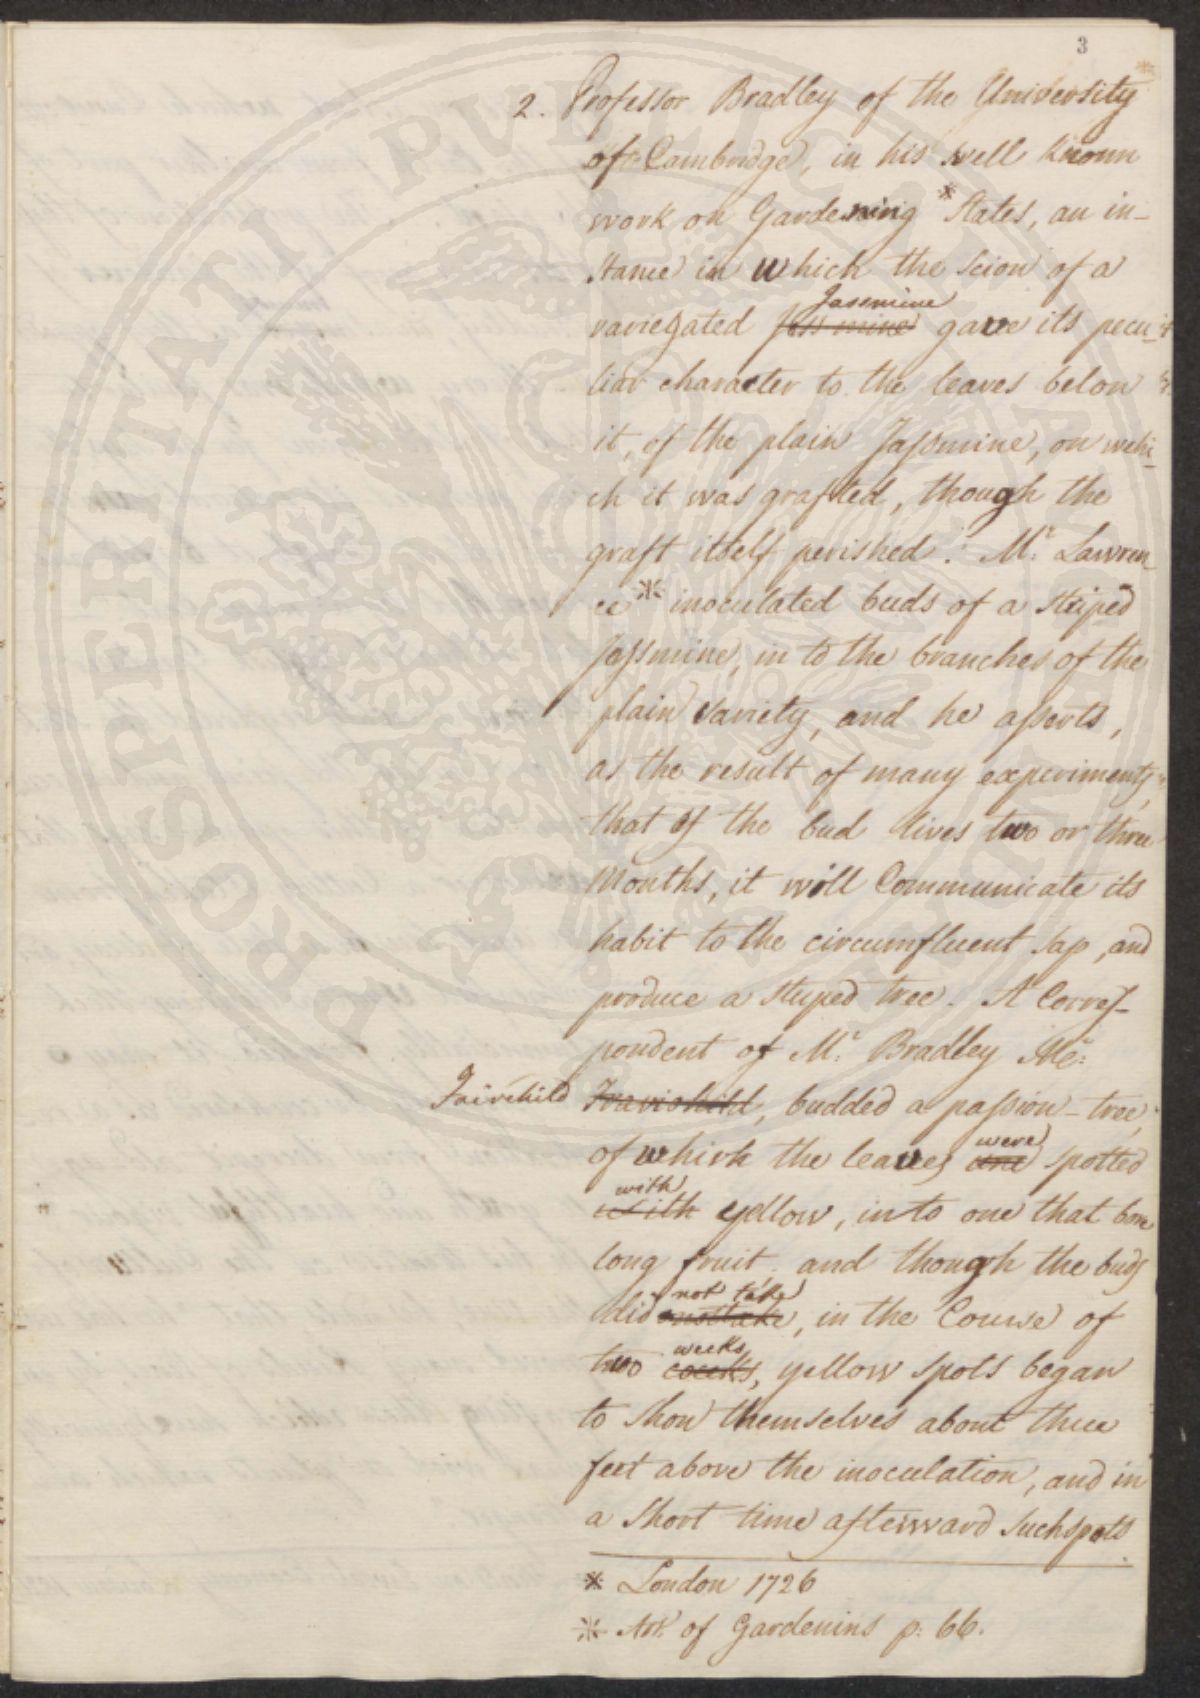 3
2. Professor Bradley of the University
of Cambridge, in his well known
work on Gardening * States, an in-
stance in which the scion of a
Jasemine
variegated Jassmine gave its pecu-
liar character to the leaves below
it, of the plain Jaſsmine, on whi-
ch it was grafted, though the
graft itself perished. Mr. Lawren-
ce * inoculated buds of a striped
Jaſsmine, in to the branches of the
plain variety, and he aſserts,
as the result of many experiments,
that if the bud lives two or three
Months, it will Communicate its
habit to the circumfluent sap, and
produce a striped tree. A Corres-
pondent of Mr. Bradley Mr.
Fairchild Fravishild, budded a paſsion-tree,
were
of which the leaves one spotted
with
with yellow, into one that bore
long fruit. and though the buds
not take
did nottake, in the Course of
weeks
two coceks, yellow spots began
to show themselves about three
feet above the inoculation, and in
a short time afterward such spots
* London 1726
* Art. of Gardenins p. 66.
PROSPERITATI PVBLICAE